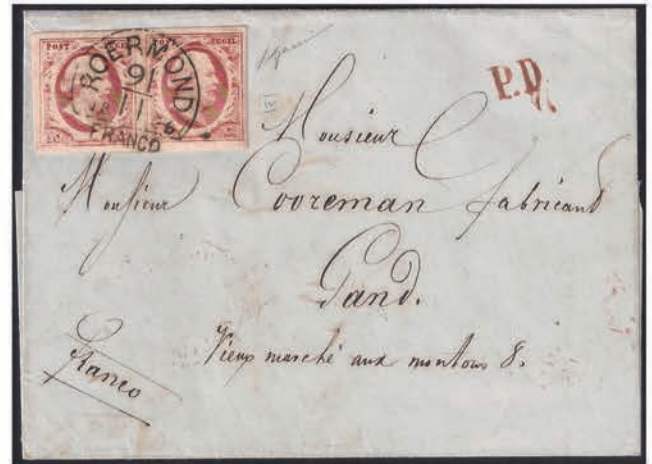 POST ZEGEL
ROERMOND
FRANCO
P.D.
Monsieur
Monsieur Cooreman fabricant
Gand.
Vieux marché aux moutons 8.
Franco